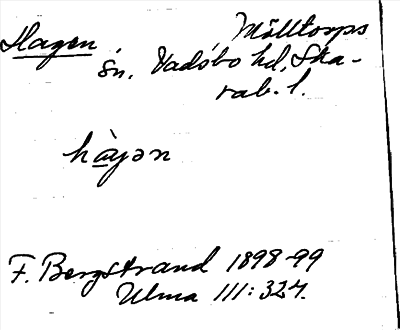 Hagen Mölltorps
sn. Vadsbo hd, Ska-
rab. l.
hàyən
F. Bergstrand 1898-99
Ulma 111:327.